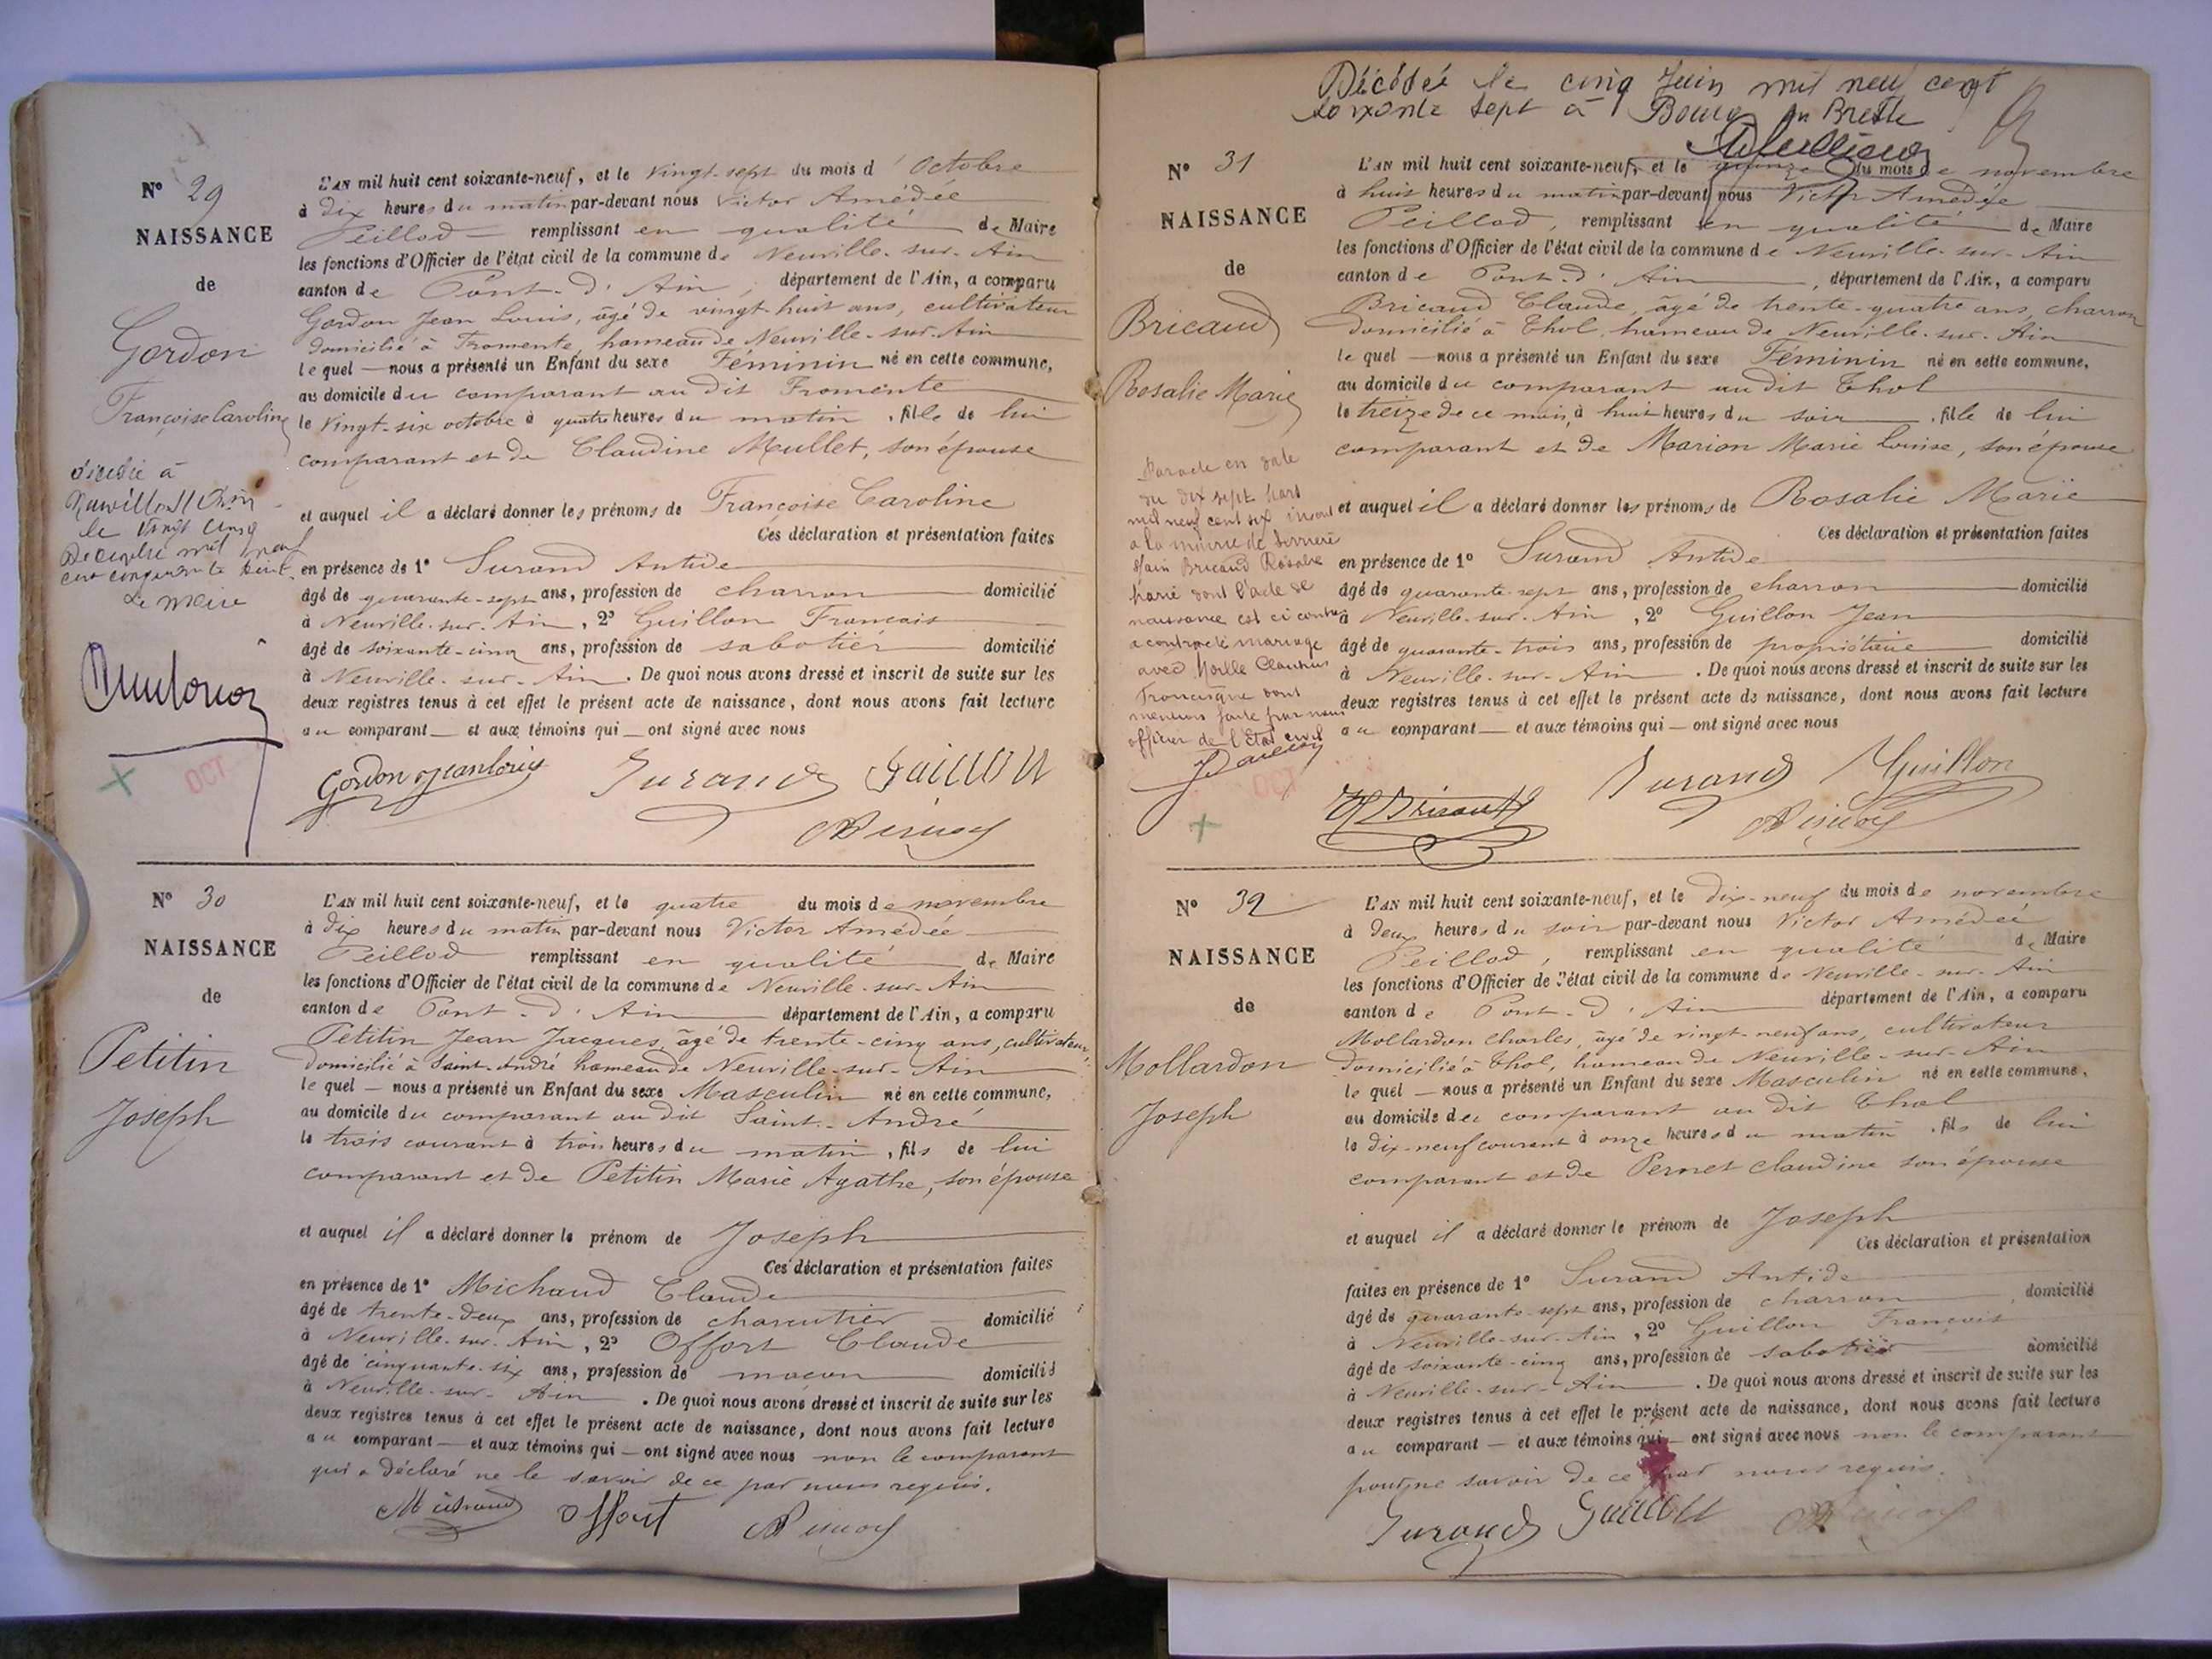 N° 29
NAISSANCE
de
Gordon
Françoise Caroline
décédée à
le vingt cinq
Décembre mil neuf
cent cinquante
Le Maire
OCT
L'AN mil huit cent soixante-neuf, et le vingt-sept du mois d'Octobre
à dix heures du matin par-devant nous Victor Amédée
Peillod remplissant en qualité de Maire
les fonctions d'Officier de l'état civil de la commune de Neuville-sur-Ain
canton de Pont-d'Ain, département de l'Ain, a comparu
Gordon Jean Louis, âgé de vingt-huit ans, cultivateur
domicilié à Fromente, hameau de Neuville-sur-Ain
le quel — nous a présenté un Enfant du sexe Féminin né en cette commune,
au domicile du comparant au dit Fromente
le vingt-six octobre à quatre heures du matin, fille de lui
comparant et de Claudine Meullet, son épouse
et auquel il a déclaré donner les prénoms de Françoise Caroline
Ces déclaration et présentation faites
en présence de 1° Durand Antide
âgé de quarante-sept ans, profession de charron domicilié
à Neuville-sur-Ain, 2° Guillon Francois
âgé de soixante-cinq ans, profession de sabotier domicilié
à Neuville-sur-Ain. De quoi nous avons dressé et inscrit de suite sur les
deux registres tenus à cet effet le présent acte de naissance, dont nous avons fait lecture
au comparant — et aux témoins qui — ont signé avec nous
Gordon Jean Louis Durand Guillon
N° 30
NAISSANCE
de
Petitin
Joseph
L'AN mil huit cent soixante-neuf, et le quatre du mois de novembre
à dix heures du matin par-devant nous Victor Amédée
Peillod remplissant en qualité de Maire
les fonctions d'Officier de l'état civil de la commune de Neuville-sur-Ain
canton de Pont-d'Ain département de l'Ain, a comparu
Petitin Jean Jacques, âgé de trente-cinq ans, cultivateur
domicilié à Saint-André hameau de Neuville-sur-Ain
le quel — nous a présenté un Enfant du sexe Masculin né en cette commune,
au domicile du comparant au dit Saint-André
le trois courant à trois heures du matin, fils de lui
comparant et de Petitin Marie Agathe, son épouse
et auquel il a déclaré donner le prénom de Joseph
Ces déclaration et présentation faites
en présence de 1° Michaud Claude
âgé de trente-deux ans, profession de charcutier domicilié
à Neuville-sur-Ain, 2° Offort Claude
âgé de cinquante-six ans, profession de maçon domicilié
à Neuville-sur-Ain. De quoi nous avons dressé et inscrit de suite sur les
deux registres tenus à cet effet le présent acte de naissance, dont nous avons fait lecture
au comparant — et aux témoins qui — ont signé avec nous non le comparant
qui a déclaré ne le savoir de ce par nous requis.
Michaud Offort
Décédée le cinq Juin mil neuf cent
soixante sept à Bourg en Bresse
N° 31
NAISSANCE
de
Bricaud
Rosalie Marie
Par acte en date
du dix sept Mars
mil neuf cent six inscrit
à la mairie de
Bricaud Rosalie
Marie dont l'acte de
naissance est ci contre
a contracté mariage
avec Claudius
dont
mention faite par nous
officier de l'Etat civil
OCT
L'AN mil huit cent soixante-neuf, et le quinze du mois de novembre
à huit heures du matin par-devant nous Victor Amédée
Peillod, remplissant en qualité de Maire
les fonctions d'Officier de l'état civil de la commune de Neuville-sur-Ain
canton de Pont-d'Ain, département de l'Ain, a comparu
Bricaud Claude, âgé de trente-quatre ans, charron
domicilié à Thol, hameau de Neuville-sur-Ain
le quel — nous a présenté un Enfant du sexe Féminin né en cette commune,
au domicile du comparant au dit Thol
le treize de ce mois, à huit heures du soir, fille de lui
comparant et de Marion Marie Louise, son épouse
et auquel il a déclaré donner les prénoms de Rosalie Marie
Ces déclaration et présentation faites
en présence de 1° Durand Antide
âgé de quarante-sept ans, profession de charron domicilié
à Neuville-sur-Ain, 2° Guillon Jean
âgé de quarante-trois ans, profession de propriétaire domicilié
à Neuville-sur-Ain. De quoi nous avons dressé et inscrit de suite sur les
deux registres tenus à cet effet le présent acte de naissance, dont nous avons fait lecture
au comparant — et aux témoins qui — ont signé avec nous
Durand Guillon
N° 32
NAISSANCE
de
Mollardon
Joseph
L'AN mil huit cent soixante-neuf, et le dix-neuf du mois de novembre
à deux heures du soir par-devant nous Victor Amédée
Peillod, remplissant en qualité de Maire
les fonctions d'Officier de l'état civil de la commune de Neuville-sur-Ain
canton de Pont-d'Ain département de l'Ain, a comparu
Mollardon Charles, âgé de vingt-neuf ans, cultivateur
domicilié à Thol, hameau de Neuville-sur-Ain
le quel — nous a présenté un Enfant du sexe Masculin né en cette commune,
au domicile du comparant au dit Thol
le dix-neuf courant à onze heures du matin, fils de lui
comparant et de Pernet Claudine son épouse
et auquel il a déclaré donner le prénom de Joseph
Ces déclaration et présentation
faites en présence de 1° Durand Antide
âgé de quarante-sept ans, profession de charron, domicilié
à Neuville-sur-Ain, 2° Guillon François
âgé de soixante-cinq ans, profession de sabotier domicilié
à Neuville-sur-Ain. De quoi nous avons dressé et inscrit de suite sur les
deux registres tenus à cet effet le présent acte de naissance, dont nous avons fait lecture
au comparant — et aux témoins qui — ont signé avec nous non le comparant
pour ne savoir de ce par nous requis.
Durand Guillon